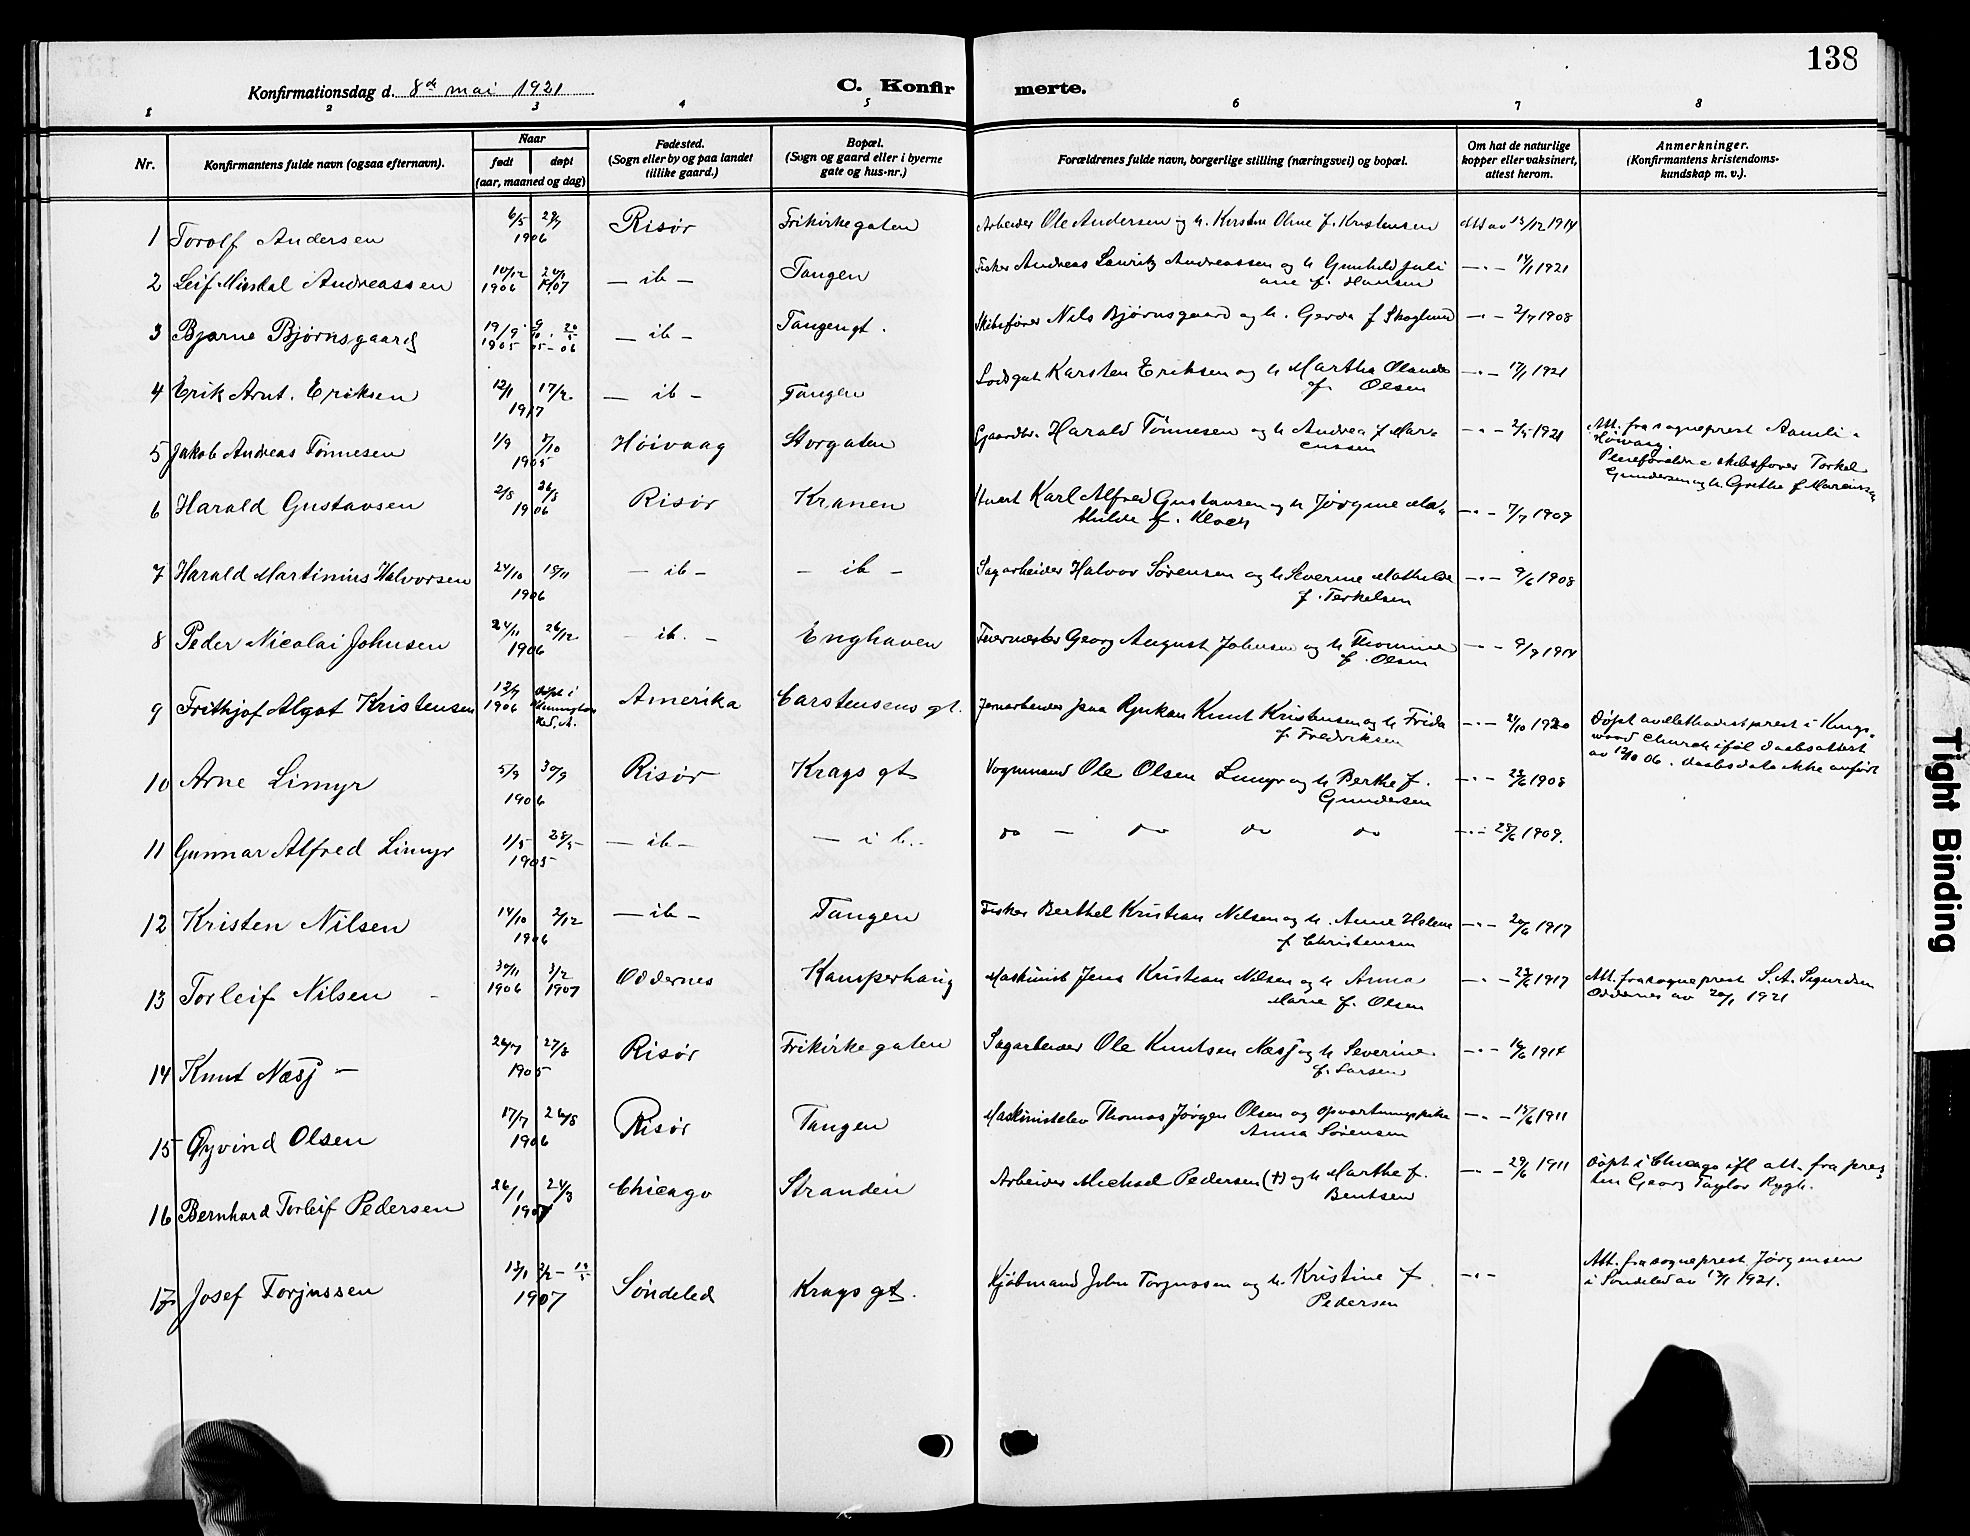 138
Konfirmationsdag d. 8de mai 1921
C. Konfir merte.
1 2 3 4 5 6 7 8
Nr.
Konfirmantens fulde navn (ogsaa efternavn).
Naar
født døpt
(aar, maaned og dag)
Fødested.
(Sogn eller by og paa landet
tillike gaard.)
Bopæl.
(Sogn og gaard eller i byerne
gate og hus-nr.)
Forældrenes fulde navn, borgerlige stilling (næringsvei) og bopæl.
Om hat de naturlige
kopper eller vaksinert,
attest herom.
Anmerkninger.
(Konfirmantens kristendoms-
kundskap m. v.).
1 Torolf Andersen 6/5 1906 Risør Frikirkegaten Arbeider Ole Andersen og h. Kirstine Oline f. Kristensen 1914
2 Leif Andreassen 10/12 1906 1907 — ib — Tangen Fisker Andreas Lauritz Andreassen og h Gunhild Juli
ane f. Hansen — " — 14/1 1921
3 Bjarne Bjørnsgaard 19/9 1905 — ib — Tangengt. Skibsfører Nils Bjørnsgaard og h. Gerda f Skoglund — " — 2/7 1908
4 Erik Arnt. Eriksen 12/1 17/2 1917 — ib — Tangen Lodsgut Karsten Eriksen og h Martha
f. Olsen — " — 17/1 1921
5 Jakob Andreas Tønnesen 1/9 1905 Høivaag Storgaten Gaardbr. Harald Tønnesen og h Andrea f Mar-
cussen — " — 1921 Att. fra sogneprest Aamli -
Høivaag.
Pleieforældre skibsfører Torkel
Gundersen og h Grethe f Marcussen
6 Harald Gustavsen 2/8 26/8 1906 Risør Kranen Karl Alfred Gustavsen og h Jørgine Ma-
thilde f. — " — 7/7 1909
7 Harald Martinius Halvorsen 24/10 18/11 1906 — ib — — ib — Sagarbeider Halvor Sørensen og h Severine Mathilde
f. Terkelsen — " — 9/6 1908
8 Peder Nicolai Johnsen 24/11 26/12 1906 ib. — Enghaven Georg August Johnsen og h Thomine
f. Olsen — " — 9/7 1914
9 Frithjof Algot Kristensen 1906 Døpt i Amerika Carstensens gt. Jernarbeider paa Rjukan Knut Kristensen og h Frida
f Fredriksen — " — 1920 Døpt av Methodistprest i Kings-
wood church iføl daabsattest
av 12/10 06. Daabsdato ikke anført
10 Arne Limyr 5/9 30/9 1906 Risør Krags gt Vognmand Ole Olsen Limyr og h Berthe f.
Gundersen — " — 23/6 1908
11 Gunnar Alfred Limyr 1/5 28/5 1905 — ib — — ib.. do — do do do — " — 1909.
12 Kristen Nilsen 14/10 2/12 1906 — ib — Tangen Fisker Berthel Kristian Nilsen og h. Anne Helene
f Christensen — " — 20/6 1917
13 Torleif Nilsen 30/11 1906 3/2 1907 Oddernes Kamperhaug Maskinist Jens Kristian Nilsen og h Anna
Marie f. Olsen — " — 23/6 1917 Att. fra sogneprest S. A. Sigurdsen
Oddernes av 20/1 1921
14 Knut Næsj — 26/7 27/8 1905 Risør Frikirkegaten Sagarbeider Ole Knutsen Næsj og h Severine
f. Larsen — " — 1914
15 Øyvind Olsen 17/7 26/8 1906 Risør Tangen Maskinistelev Thomas Jørgen Olsen og opvartningspike
Anna Sørensen — " — 15/6 1911
16 Bernhard Torleif Pedersen 26/1 24/3 1907 Chicago Stranden Arbeider Michael Pedersen (†) og h Marthe f.
Bentsen — " — 29/6 1911 Døpt i Chicago ifl att. fra pres-
ten Georg Taylor Rygh.
17 Josef Torjussen 13/1 1907 Søndeled Krags gt. Kjøbmand John Torjussen og h. Kristine f.
Pedersen — " — Att. fra sogneprest Jørgensen
i Søndeled av 1921.
Tight Binding